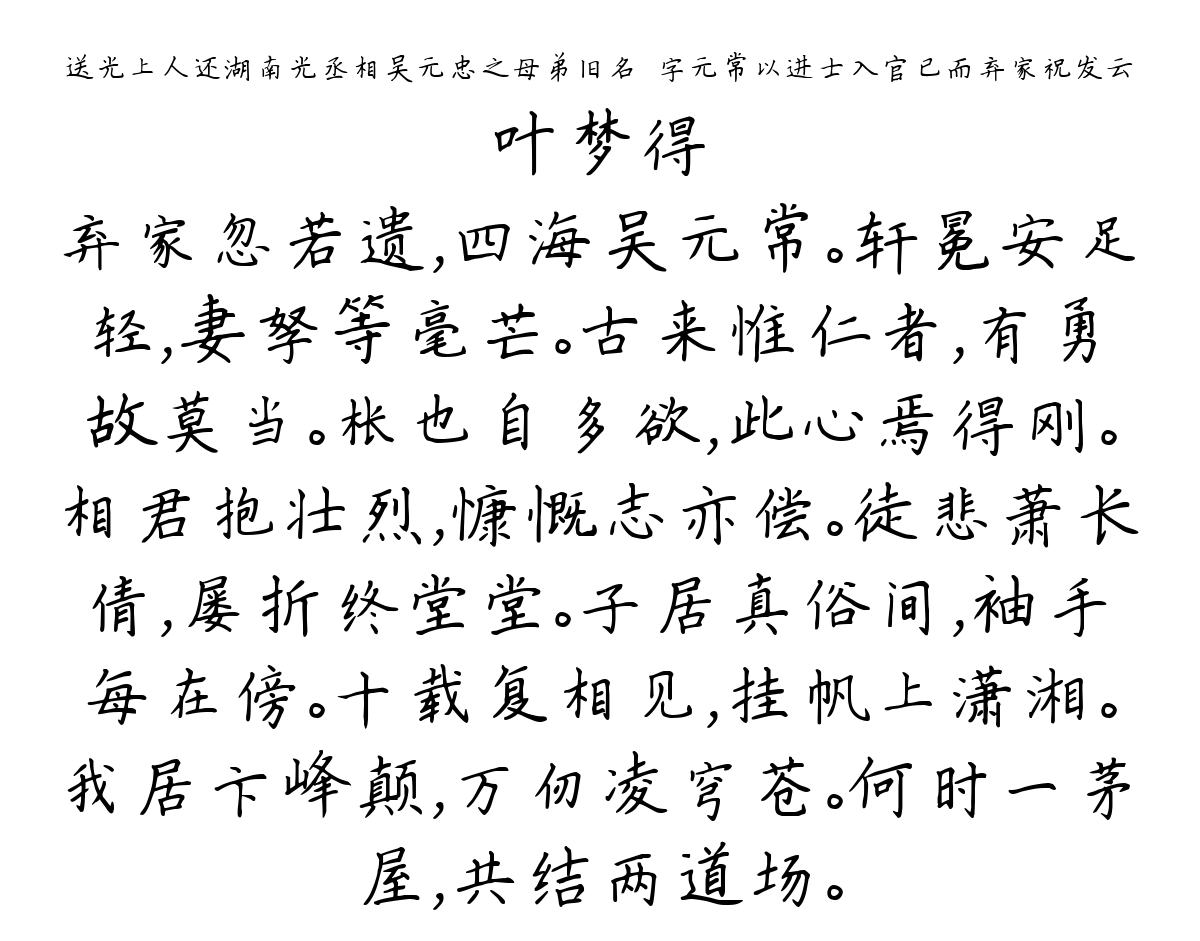 送光上人还湖南光丞相吴元忠之母弟旧名 字元常以进士入官已而弃家祝发云
叶梦得
弃家忽若遗,四海吴元常。轩冕安足
轻,妻孥等毫芒。古来惟仁者,有勇
故莫当。枨也自多欲,此心焉得刚。
相君抱壮烈,慷慨志亦偿。徒悲萧长
倩,屡折终堂堂。子居真俗间,袖手
每在傍。十载复相见,挂帆上潇湘。
我居卞峰颠,万仞凌穹苍。何时一茅
屋,共结两道场。